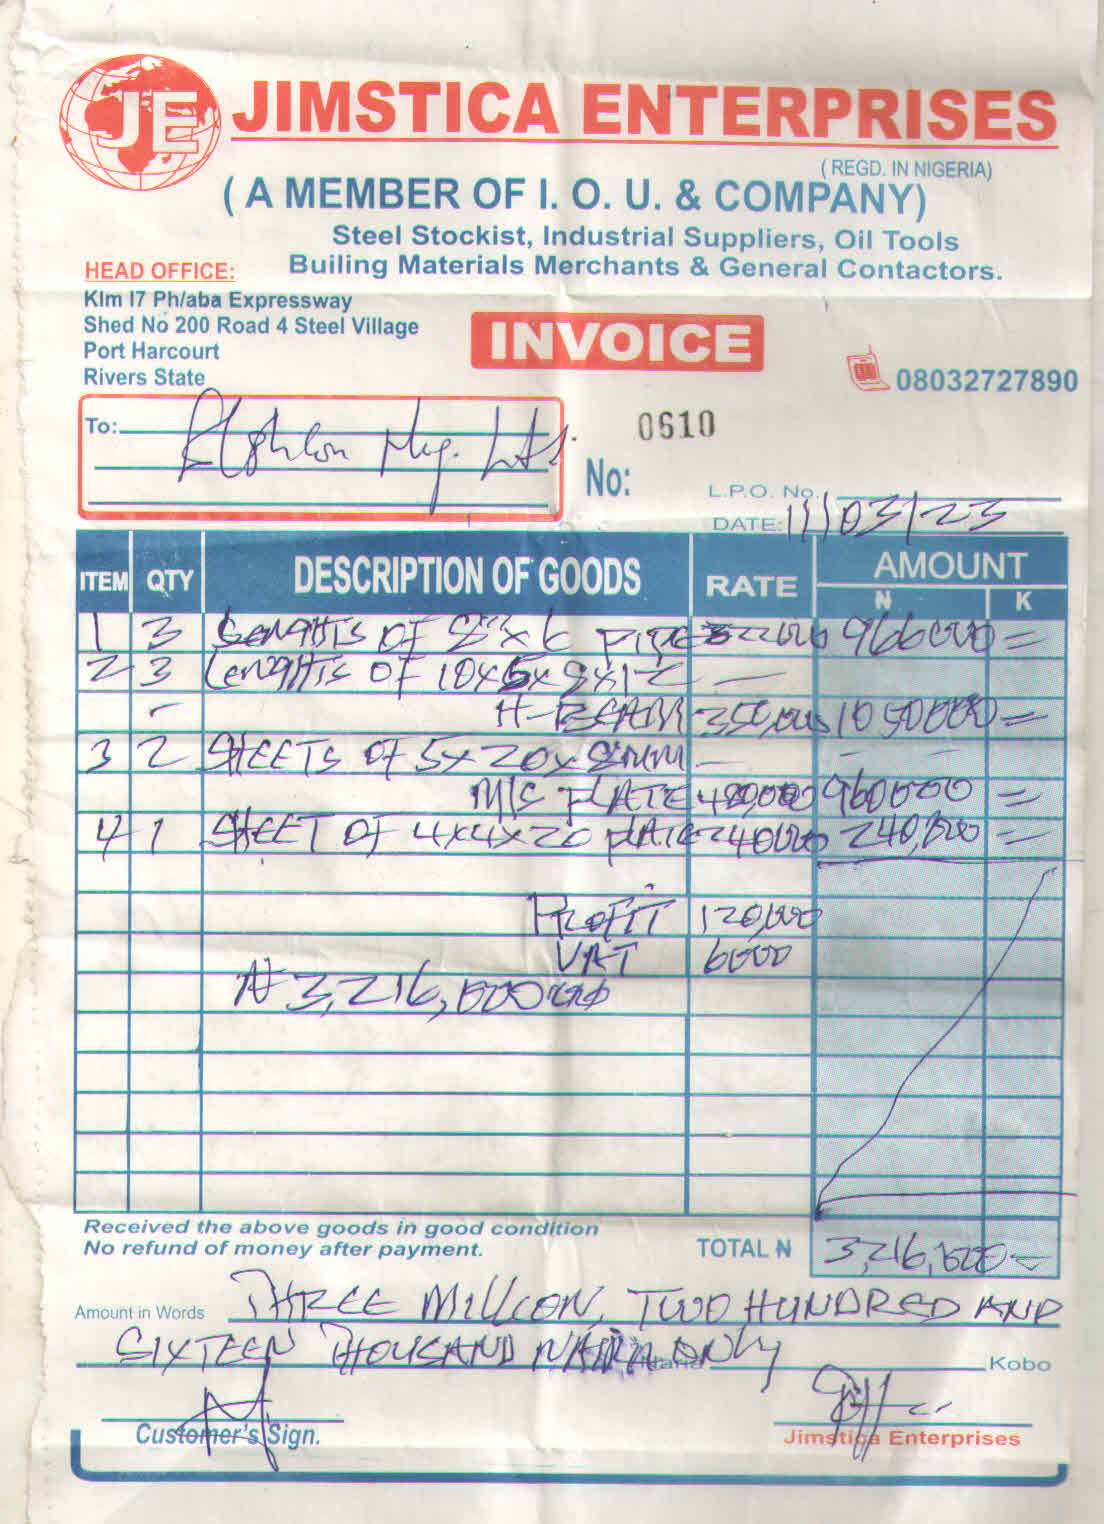 JE
JIMSTICA ENTERPRISES
( REGD. IN NIGERIA)
( A MEMBER OF I. O. U. & COMPANY)
Steel Stockist, Industrial Suppliers, Oil Tools
Builing Materials Merchants & General Contactors.
HEAD OFFICE:
Klm I7 Ph/aba Expressway
Shed No 200 Road 4 Steel Village
Port Harcourt
Rivers State
INVOICE
08032727890
To: Ltd.
0610
No:
L.P.O. No.
DATE: 11/03/23
ITEM QTY DESCRIPTION OF GOODS RATE AMOUNT
₦ K
1 3 Lenghts OF 8"x6 PIPE 322000 966000 =
2 3 Lenghts OF 10x5x8x12 —
- H-BEAM 350,000 1050000 =
3 2 SHEETS OF 5x20x8mm — - -
M/S PLATE 480,000 960000 =
4 1 SHEET OF 4x4x20 PLATE 240000 240,000 =
PROFIT 120,000
VAT 6000
₦3,216,000
Received the above goods in good condition
No refund of money after payment.
TOTAL ₦ 3,216,000 =
Amount in Words THREE MILLION, TWO HUNDRED AND
SIXTEEN THOUSAND NAIRA ONLY Kobo
Customer's Sign.
Jimstica Enterprises